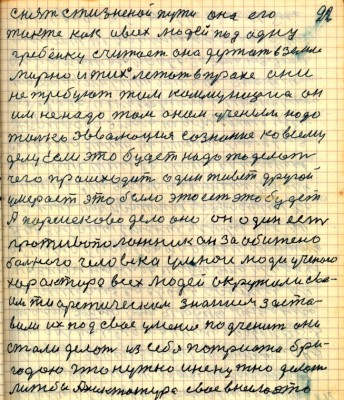 22
снят с тизненой пути она его
также как и всех людей под одну
гребёнку считает она держат в земле
мирно и тихо летат в прахе они
не требуют жим коммунизма он
им ненадо там оним ученим надо
только эввалюция сознание ко всему
делу если это будет надо то делат
чего праисходит один живёт другой
умерает это было это ест это будет
А паршеково дело оно он один ест
противоположник он за обитено
болного человека умной люди ученого
характира всех людей окрутили сво-
им тиаретическим знанием заста-
вили их под свое умение подченит они
стали делат из себя потриота бри-
гадою что нужно и ненужно делат
литьбы диктатура свое внесло это